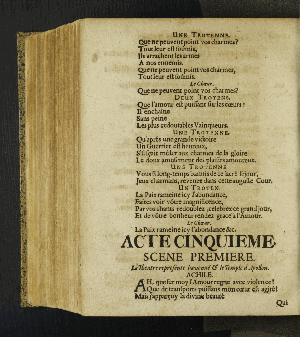 UNE TROYENNE.
Que ne peuvent point vos charmes?
Tout leur est soûmis,
Ils arrachent les armes
A nos ennemis.
Que ne peuvent point vos charmes,
Tout leur est soûmis.
Le Chœur.
Que ne peuvent point vos charmes?
DEUX TROYENS.
Que l'amour est puissant sur les cœurs!
Il enchaîne
Sans peine
Les plus redoutables Vainqueurs.
UNE TROYENNE.
Qu'aprés une grande victoire
Un Guerrier est heureux,
de la gloire
Le doux amusement des plaisirs amoureux.
UNE TROYENNE
Vous si long-temps bannis de ce sejour,
Jeux charmans, revenez dans cette auguste Cour.
UN TROYEN.
La Paix rameine icy l'abondance,
Faites voir vôtre magnificence,
Par vos chants redoublez celebrez ce grand jour,
Et de vôtre bonheur rendez grace à l'Amour.
Le Chœur.
La Paix rameine icy l'abondance &c.
ACTE CINQUIEME.
SCENE PREMIERE.
Le Theatre represente & le Temple d'Apollon.
ACHILE.
AH, que sur moy l'Amour regne avec violence!
Que de transports puissans mon cœur est agité!
Mais j'apperçoy la divine beauté
Qui